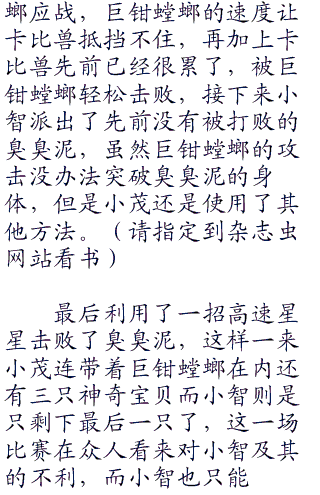 螂应战，巨钳螳螂的速度让
卡比兽抵挡不住，再加上卡
比兽先前已经很累了，被巨
钳螳螂轻松击败，接下来小
智派出了先前没有被打败的
臭臭泥，虽然巨钳螳螂的攻
击没办法突破臭臭泥的身
体，但是小茂还是使用了其
他方法。（请指定到杂志虫
网站看书）
最后利用了一招高速星
星击败了臭臭泥，这样一来
小茂连带着巨钳螳螂在内还
有三只神奇宝贝而小智则是
只剩下最后一只了，这一场
比赛在众人看来对小智及其
的不利，而小智也只能